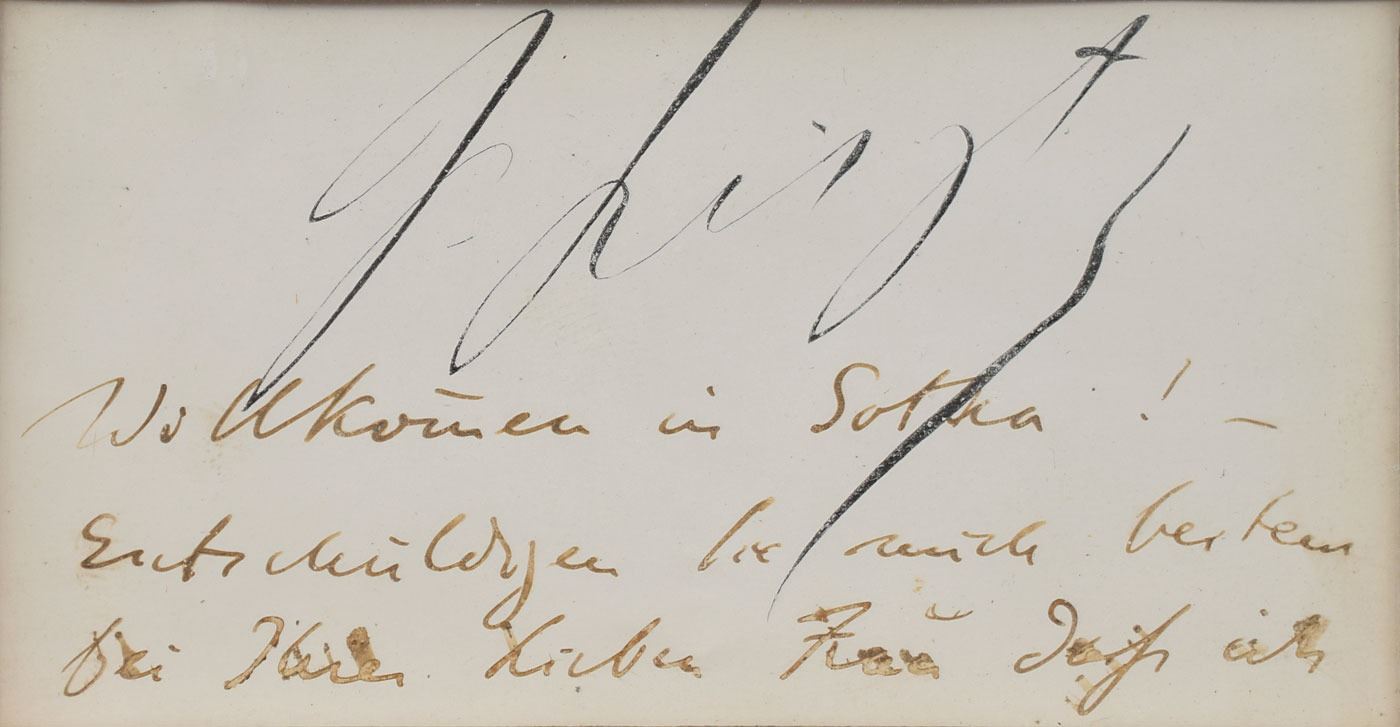 F. Liszt
Wollkom̄en in Gotha! –
Entschuldigen Sie mich bestens
bei Ihrer Lieben Frau dass ich